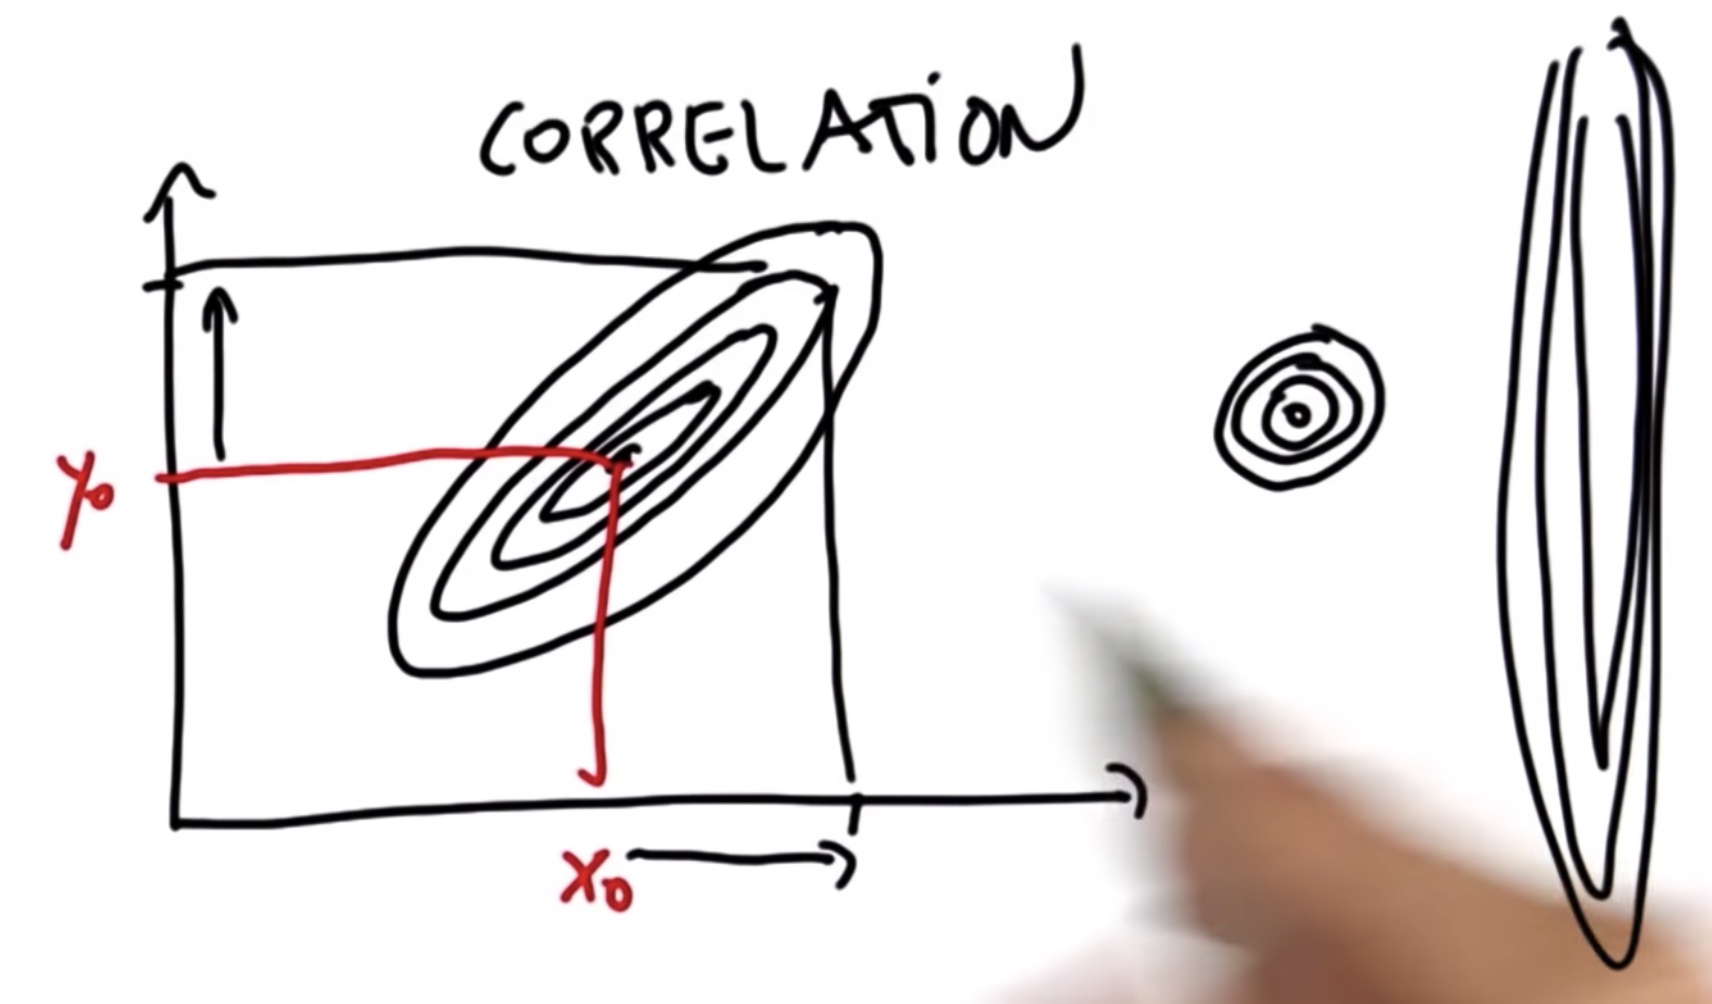 CORRELATION
y₀
x₀